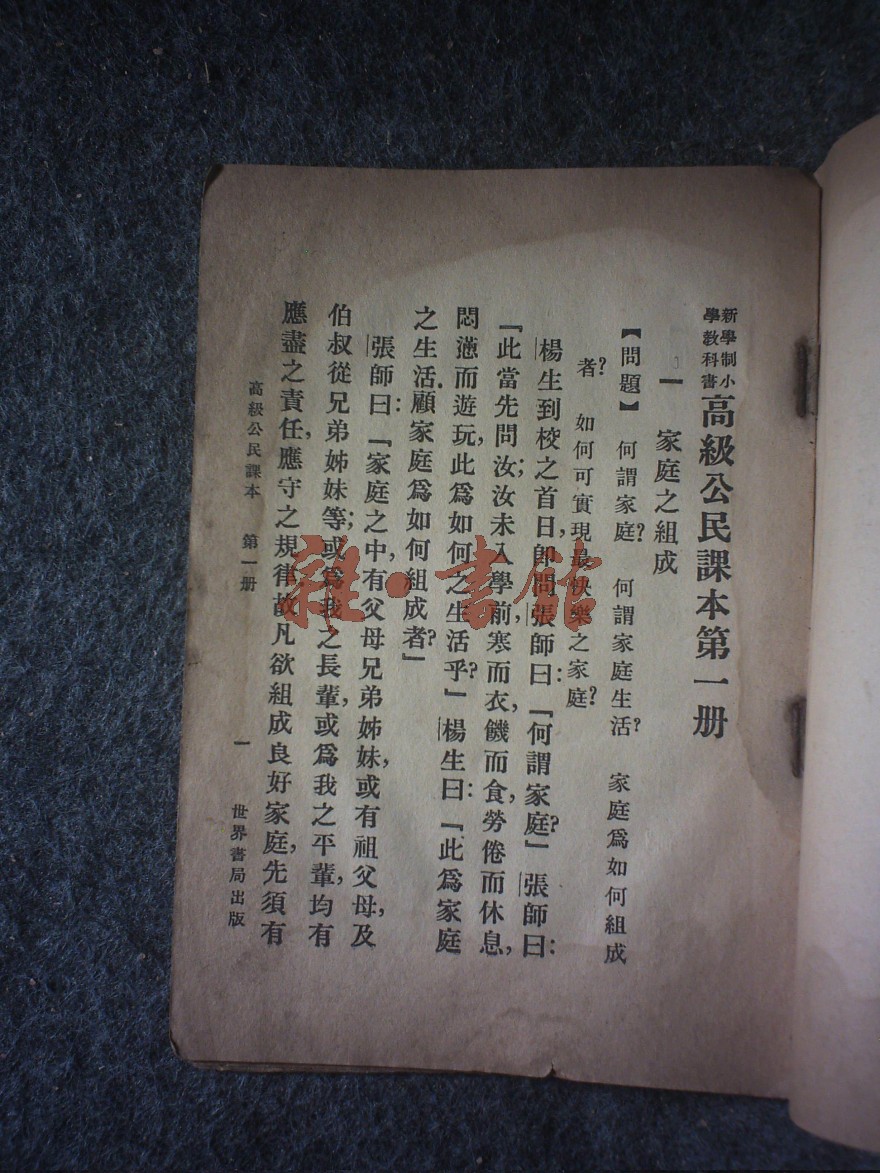 新學制小
學教科書
高級公民課本第一册
一　家庭之組成
【問題】　何謂家庭？　何謂家庭生活？　家庭爲如何組成
者？　如何可實現最快樂之家庭？
楊生到校之首日，卽問張師曰：「何謂家庭？」張師曰：
「此當先問汝；汝未入學前，寒而衣，饑而食，勞倦而休息，
悶懣而遊玩，此爲如何之生活乎？」楊生曰：「此爲家庭
之生活：顧家庭爲如何組成者？」
張師曰：「家庭之中，有父母兄弟姊妹，或有祖父母，及
伯叔從兄弟姊妹等；或爲我之長輩，或爲我之平輩，均有
應盡之責任，應守之規律，故凡欲組成良好家庭，先須有
高級公民課本　第一册　一　世界書局出版
雜·書館